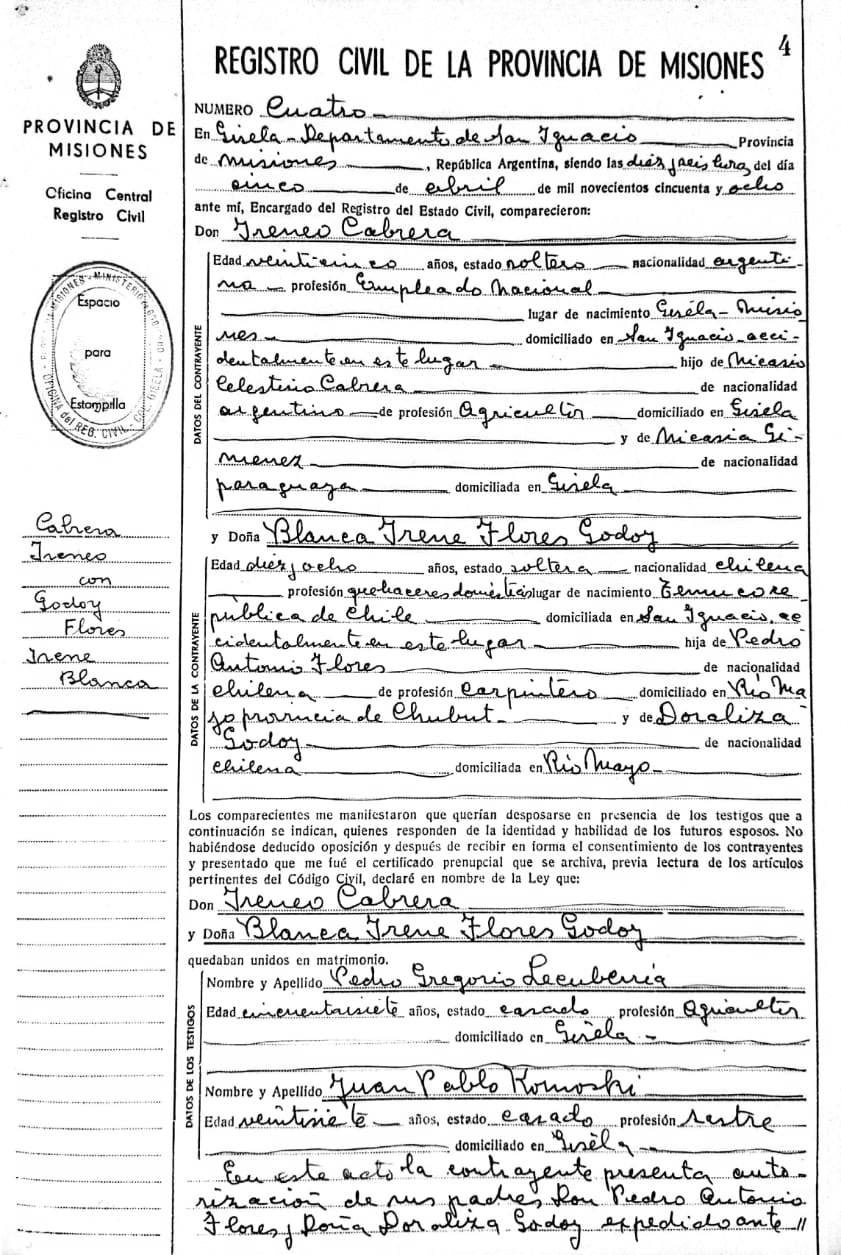 4
REGISTRO CIVIL DE LA PROVINCIA DE MISIONES
PROVINCIA DE
MISIONES
Oficina Central
Registro Civil
Espacio
para
Estampilla
Cabrera
Ireneo
con
Godoy
Flores
Irene
Blanca
NUMERO Cuatro
En Gisela - Departamento de San Ignacio Provincia
de misiones, República Argentina, siendo las diez y seis horas del día
cinco de abril de mil novecientos cincuenta y ocho
ante mí, Encargado del Registro del Estado Civil, comparecieron:
Don Ireneo Cabrera
DATOS DEL CONTRAYENTE
Edad veinticinco años, estado soltero nacionalidad argenti-
na profesión Empleado Nacional
lugar de nacimiento Gisela - Misio
nes domiciliado en San Ignacio acci-
dentalmente en este lugar hijo de Nicasio
Celestino Cabrera de nacionalidad
argentino de profesión Agricultor domiciliado en Gisela
y de Nicasia Gi-
menez de nacionalidad
paraguaya domiciliada en Gisela
y Doña Blanca Irene Flores Godoy
DATOS DE LA CONTRAYENTE
Edad diez y ocho años, estado soltera nacionalidad chilena
profesión quehaceres domésticos lugar de nacimiento Temuco re
pública de Chile domiciliada en San Ignacio, ac
cidentalmente en este lugar hija de Pedro
Antonio Flores de nacionalidad
chilena de profesión carpintero domiciliado en Río Ma
yo provincia de Chubut y de Doraliza
Godoy de nacionalidad
chilena domiciliada en Río Mayo
Los comparecientes me manifestaron que querían desposarse en presencia de los testigos que a
continuación se indican, quienes responden de la identidad y habilidad de los futuros esposos. No
habiéndose deducido oposición y después de recibir en forma el consentimiento de los contrayentes
y presentado que me fué el certificado prenupcial que se archiva, previa lectura de los artículos
pertinentes del Código Civil, declaré en nombre de la Ley que:
Don Ireneo Cabrera
y Doña Blanca Irene Flores Godoy
quedaban unidos en matrimonio.
DATOS DE LOS TESTIGOS
Nombre y Apellido Pedro Gregorio Lecuberria
Edad cincuentaisiete años, estado casado profesión Agricultor
domiciliado en Gisela -
Nombre y Apellido Juan Pablo Komoski
Edad veintisiete años, estado casado profesión sastre
domiciliado en Gisela
En este acto la contrayente presenta auto-
rización de sus padres Don Pedro Antonio
Flores y Doña Doraliza Godoy expedido ante //